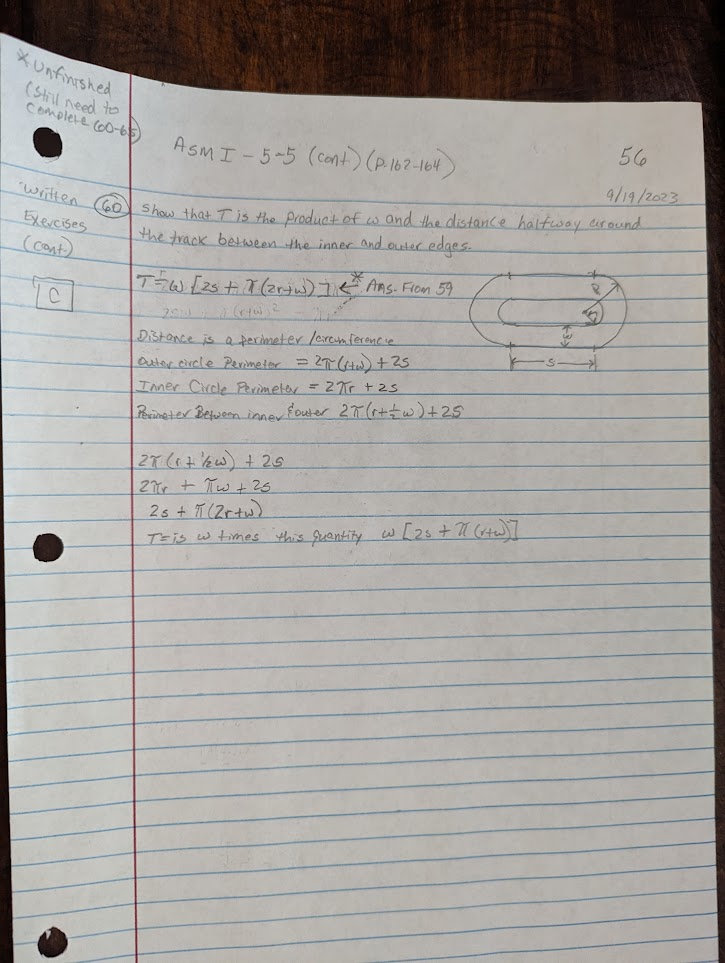 * Unfinished
(Still need to
complete 60-65)
ASM I - 5-5 (cont) (p.162-164)
56
9/19/2023
Written
Exercises
(cont)
C
60 Show that T is the product of w and the distance halfway around
the track between the inner and outer edges.
T = w [2s + π(2r+w)] ← * Ans. From 59
Distance is a perimeter/circumference
Outer circle Perimeter = 2π(r+w) + 2s
Inner Circle Perimeter = 2πr + 2s
Perimeter Between inner & outer 2π(r+½w) + 2s
2π(r+½w) + 2s
2πr + πw + 2s
2s + π(2r+w)
T = is w times this quantity w [2s + π(r+w)]
w
s